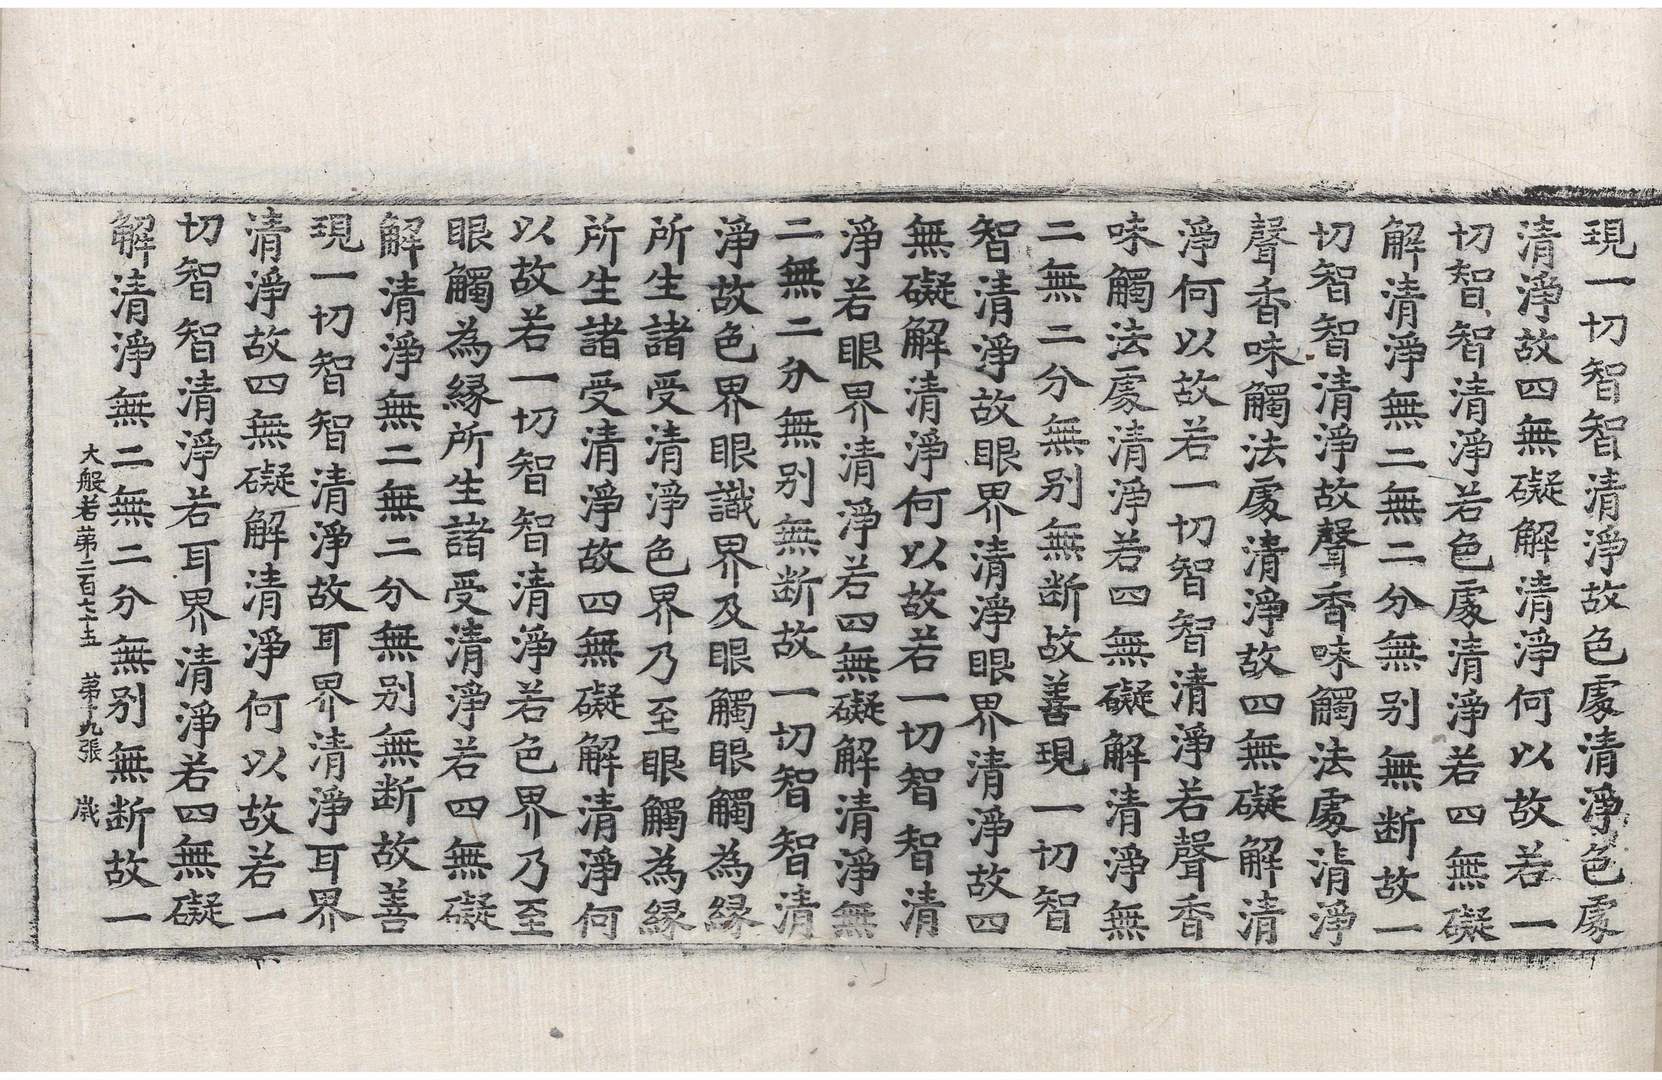 現一切智智清淨故色處清淨色處
清淨故四無礙解清淨何以故若一
切智智清淨若色處清淨若四無礙
解清淨無二無二分無別無断故一
切智智清淨故聲香味觸法處清淨
聲香味觸法處清淨故四無礙解清
淨何以故若一切智智清淨若聲香
味觸法處清淨若四無礙解清淨無
二無二分無別無断故善現一切智
智清淨故眼界清淨眼界清淨故四
無礙解清淨何以故若一切智智清
淨若眼界清淨若四無礙解清淨無
二無二分無別無断故一切智智清
淨故色界眼識界及眼觸眼觸為緣
所生諸受清淨色界乃至眼觸為緣
所生諸受清淨故四無礙解清淨何
以故若一切智智清淨若色界乃至
眼觸為緣所生諸受清淨若四無礙
解清淨無二無二分無別無断故善
現一切智智清淨故耳界清淨耳界
清淨故四無礙解清淨何以故若一
切智智清淨若耳界清淨若四無礙
解清淨無二無二分無別無断故一
大般若第二百七十五 第十九張 歳